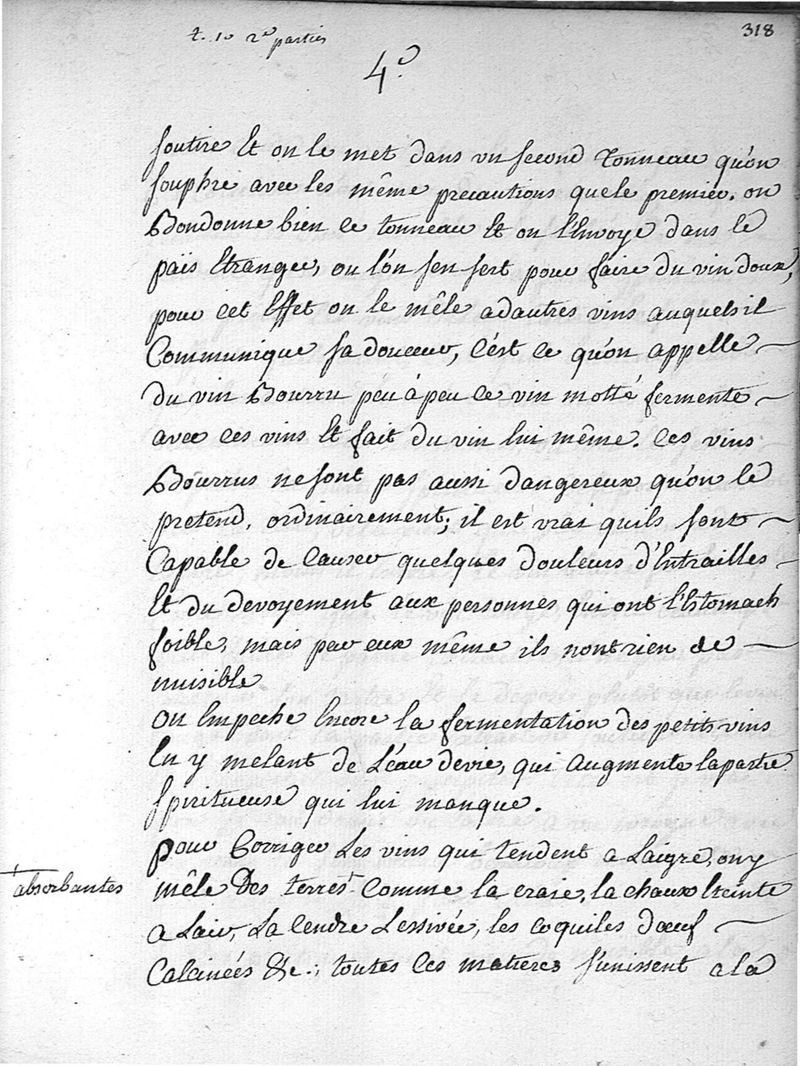 t. 10 2e partie
318
4.e
soutire Et on le met dans un second Tonneau qu'on
souphre avec les même precautions que le premier. on
Bondonne bien ce tonneau Et on l'Envoye dans le
païs Etranger, ou l'on s'en sert pour faire du vin doux,
pour cet Effet on le mêle adautres vins auquels il
Communique sa douceur, C'est ce qu'on appelle
du vin Bourru peu à peu ce vin motté fermente
avec ces vins Et fait du vin lui même. Ces vins
Bourrus ne sont pas aussi dangereux qu'on le
pretend, ordinairement; il est vrai quils sont
Capable de Causer quelques douleurs d'Entrailles
Et du devoyement aux personnes qui ont l'Estomach
foible, mais par eux même ils nont rien de
nuisible
on Empeche Encore la fermentation des petits vins
En y melant de L'éau devie, qui augmente la partie
spiritueuse qui lui manque.
pour Corriger Les vins qui tendent a Laigre, on y
mêle Des terres+ Comme la craie, la chaux Eteinte
+absorbantes
a Lair, La Cendre Lessivée, les coquiles dœuf
Calcinées &c.; toutes ces matieres s'unissent a la